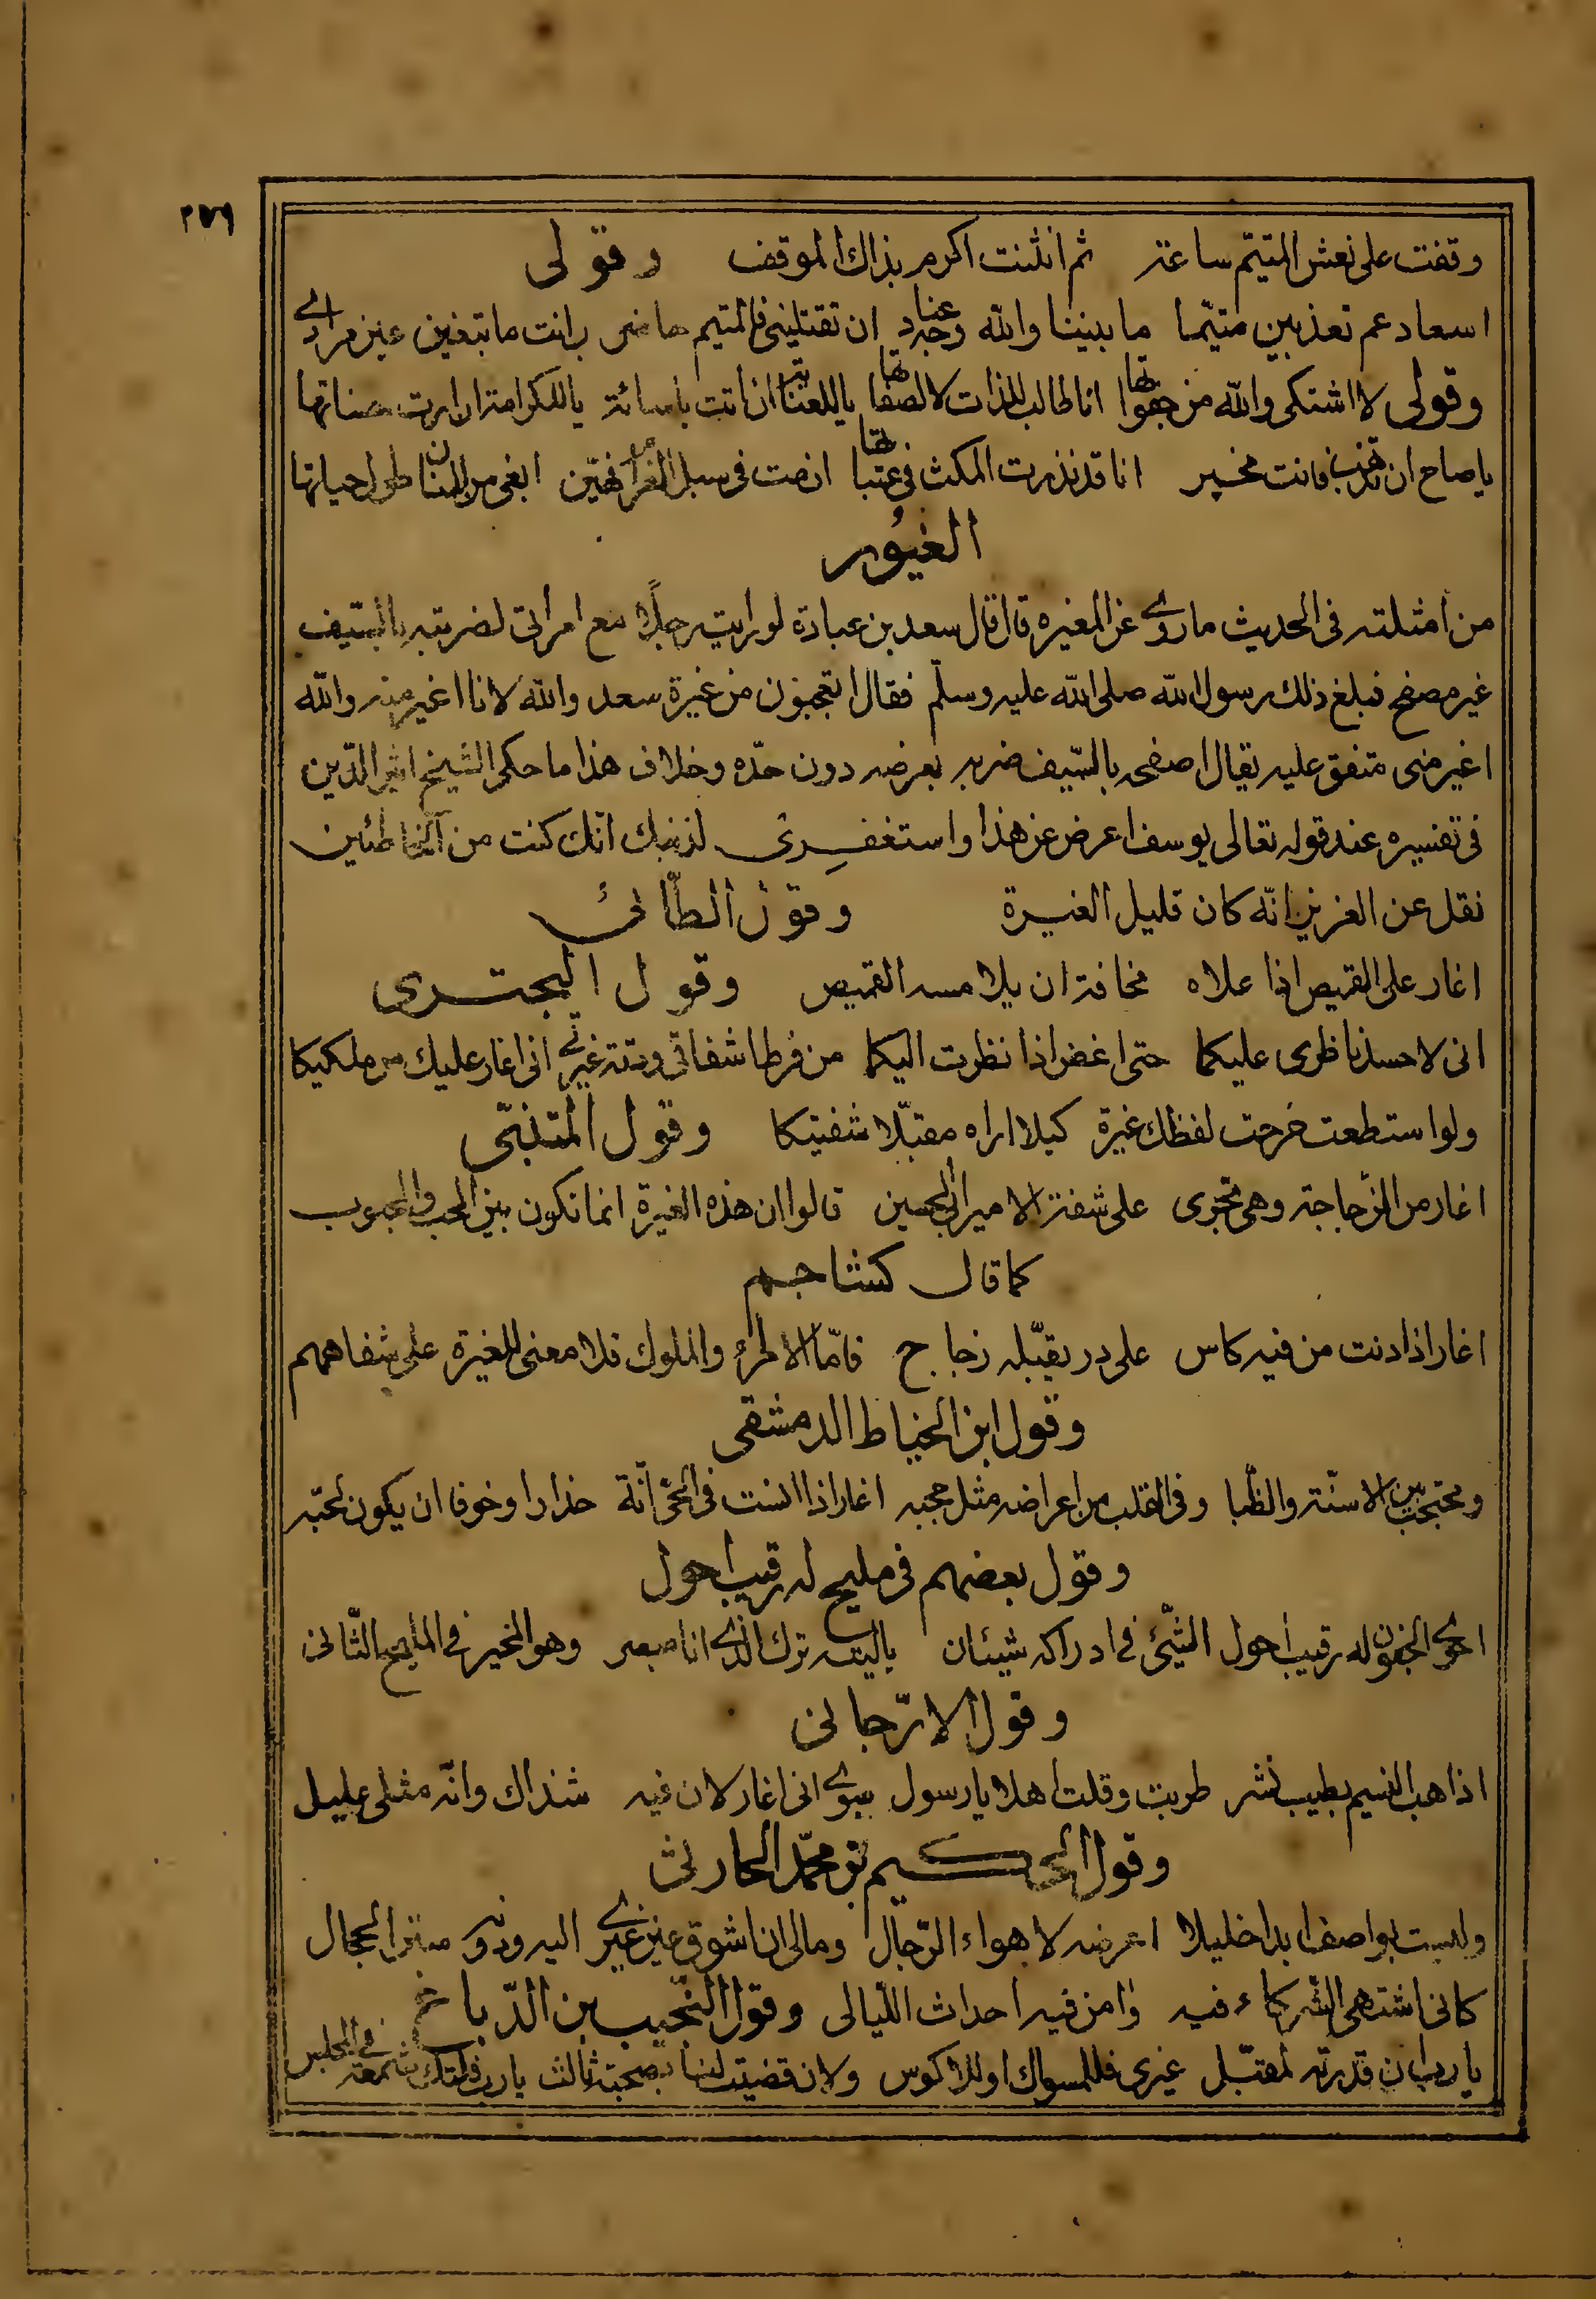 ٢٧٩
وقفت على نعش المتيّم ساعة ثم انثنت اكرم بذاك الموقف وقولى
اسعاد عم تعذبين متيّما ما بيننا والله وجه عناد ان تقتلينى فالمتيم حاضر وانت ما تبغين عين مرادى
وقولى لا اشتكى والله من جفواتها انا طالب للذات لا لصفاتها يا للعنا ان اتت باسائة يا للكرامة ان ارت حسناتها
يا صاح ان تذهب فانت مخير انا قد نذرت المكث فى عتباتها ان مت فى سبل الغرام فهيّن ابغى من المنان طول حياتها
الغيور
من أمثلته فى الحديث ما روى عن المغيرة قال قال سعد بن عبادة لو رايت رجلًا مع امرأتى لضربته بالسّيف
غير مصفح فبلغ ذلك رسول الله صلى الله عليه وسلّم فقال اتعجبون من غيرة سعد والله لانا اغير منه والله
اغير منى متفق عليه يقال اصفحه بالسّيف ضربه بعرضه دون حدّه وخلاف هذا ما حكى الشيخ اثير الدّين
فى تفسيره عند قوله تعالى يوسف اعرض عن هذا واستغفرى لذنبك انّك كنت من الخاطئين
نقل عن العزيز انّه كان قليل الغيرة وقول الطّائى
اغار على القميص اذا علاه مخافة ان يلامسه القميص وقول البحترى
انى لاحسد ناظرى عليكما حتى اغض اذا نظرت اليكا من فرط اشفاقى ودقة غيرتى انى اغار عليك من ملكيكا
ولو استطعت جرحت لفظك غيرة كيلا اراه مقبّلا شفتيكا وقول المتنبّى
اغار من الزّجاجة وهى تجرى على شفة الامير ابى الحسين قالوا ان هذه الغيرة انما تكون بين المحب والمحبوب
كما قال كشاجم
اغار اذا دنت من فيه كاس على در يقبّله زجاج فامّا الامراء والملوك فلا معنى للغيرة على شفاههم
وقول ابن الخياط الدمشقى
ومحتجب بين الاسنّة والظبا وفى القلب من اعراضه مثل حجبه اغار اذا انست فى الحىّ انّة حذارا وخوفا ان يكون لحبّه
وقول بعضهم فى مليح له رقيب احول
احوى الجفون له رقيب أحول الشّيئ فى ادراكه شيئان ياليته ترك الذى انا مبصر وهو المخير فى المليح الثّانى
وقول الارّجانى
اذا هب النسيم بطيب نشر طربت وقلت اهلا يا رسول سوى انى اغار لان فيه شذاك وانّه مثلى عليل
وقول الحكيم بن محمّد الحارثى
ولست بواصف ابدا خليلا اعرضه لاهواء الرّجال ومالى ان اشوق عين غيرى اليه ودونه ستر الحجال
كانى اشتهى الشّركاء فيه وامن فيه احداث اللّيالى وقول النّجيب بن الدّباغ
يا رب ان قدرته لمقبّل غيرى فللمسواك او للاكوس ولان قضيت لنا بصحبة ثالث يا رب فلتك شمعة فى المجلس